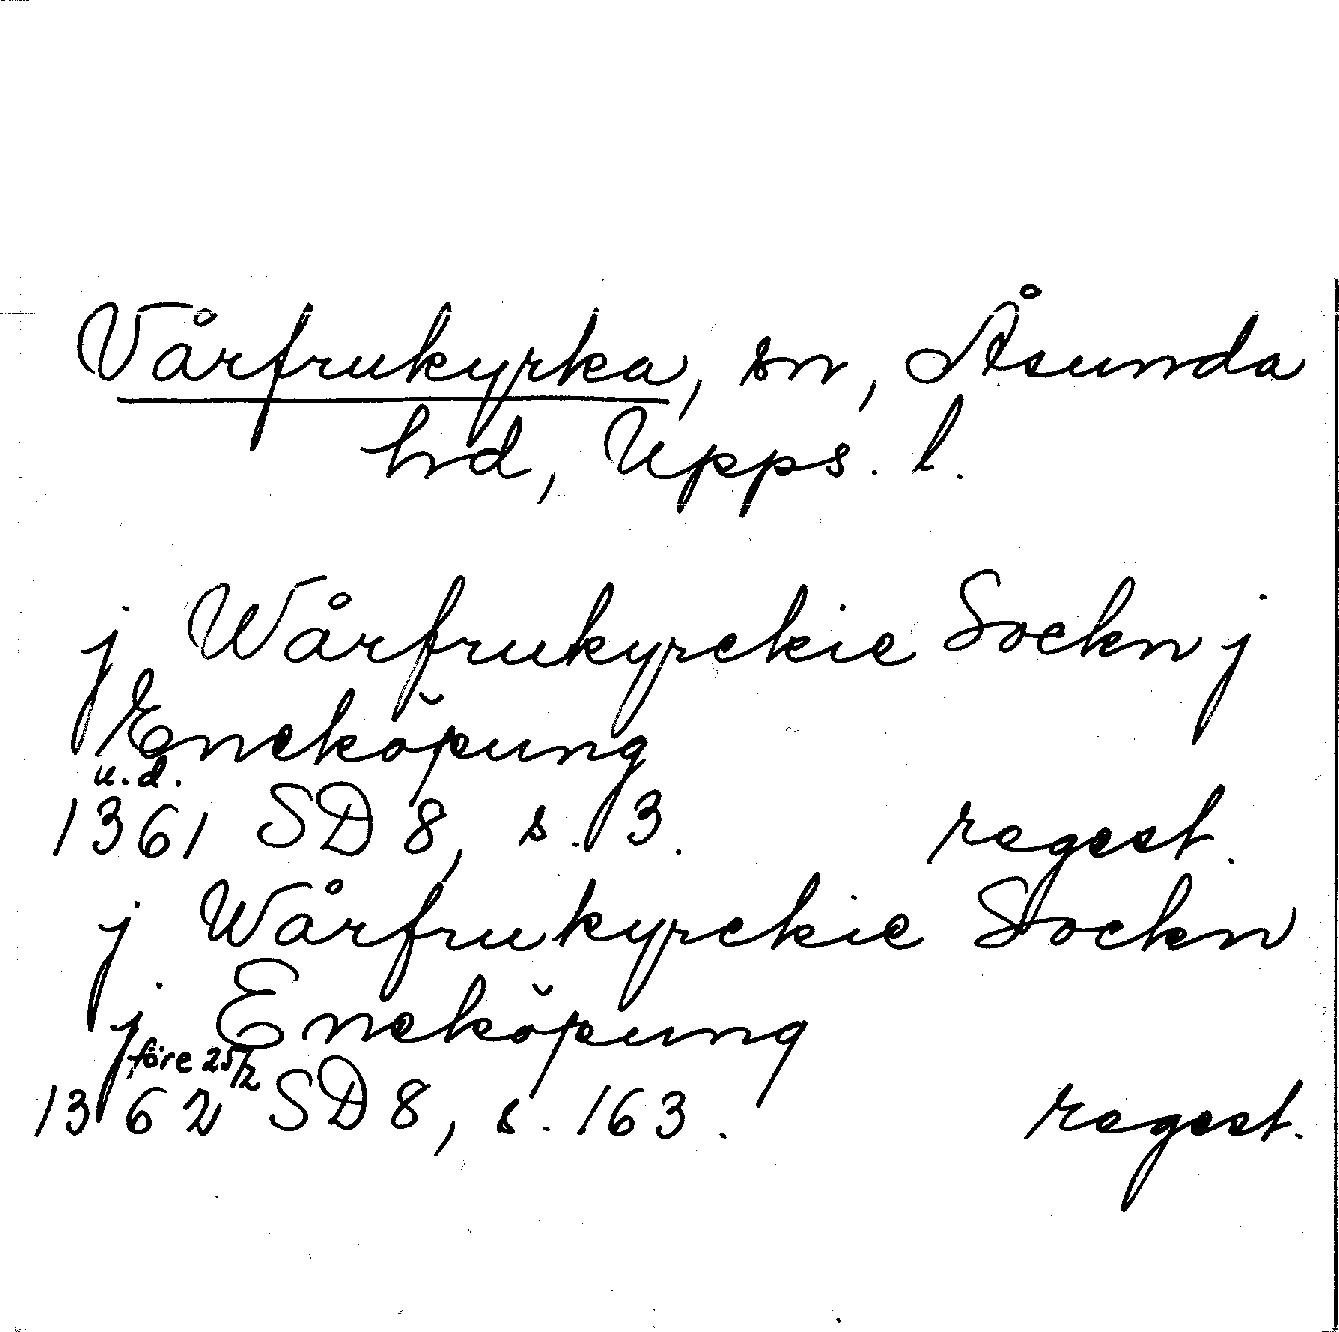 Vårfrukyrka, sn, Åsunda
hd, Upps. l.
j Wårfrukyrckie Sockn j
Eneköpung
u.d.
1361 SD 8, s. 3. regest.
j Wårfrukyrckie Sockn
j Eneköpung
före 25/2
1362 SD 8, s. 163. regest.